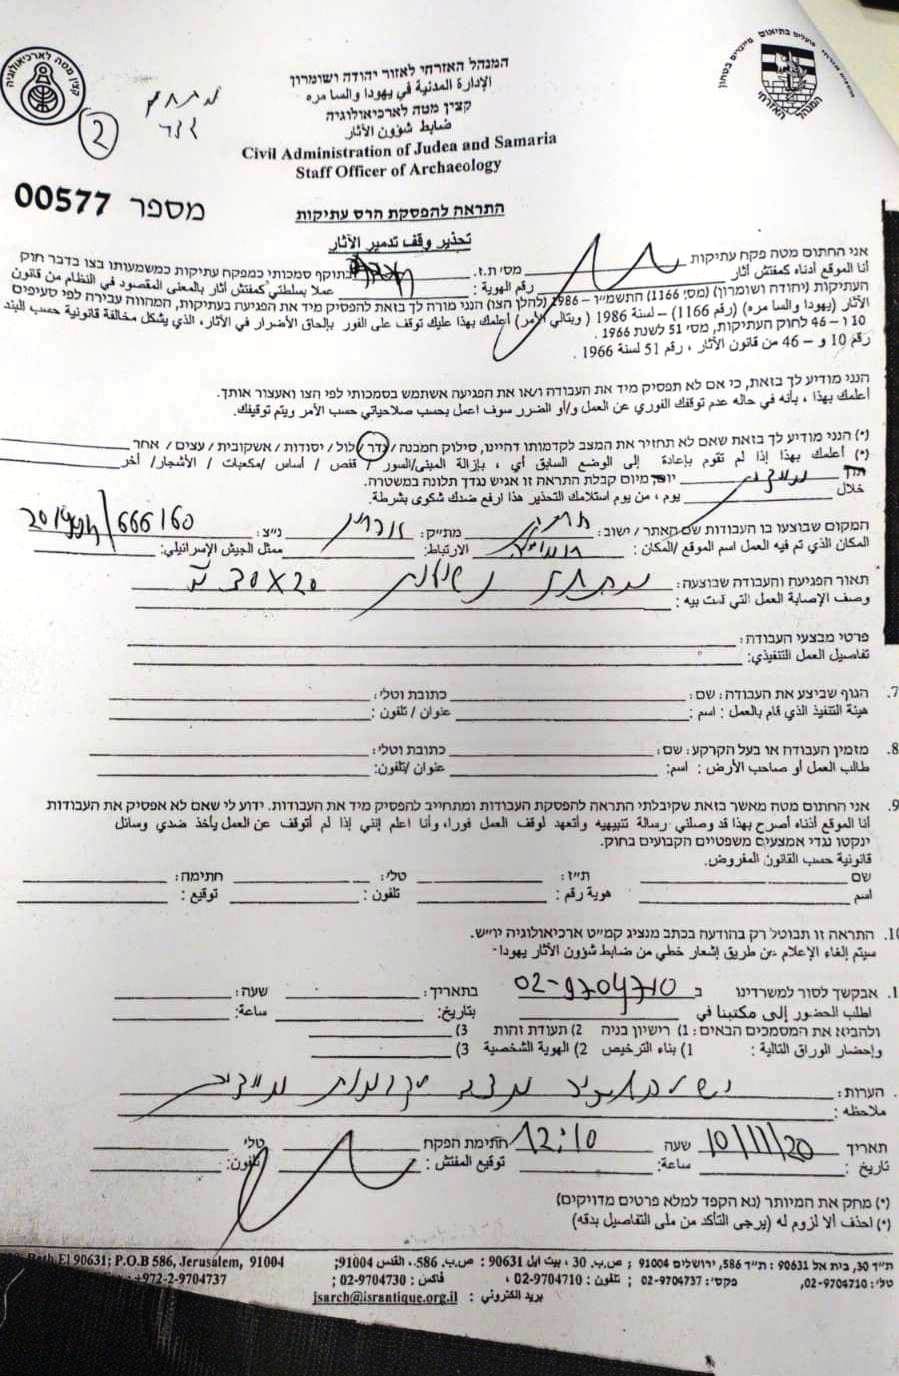 קצין מטה לארכיאולוגיה
המנהל האזרחי
2
המנהל האזרחי לאזור יהודה ושומרון
الإدارة المدنية في يهودا والسامره
קצין מטה לארכיאולוגיה
ضابط شؤون الآثار
Civil Administration of Judea and Samaria
Staff Officer of Archaeology
מספר 00577
התראה להפסקת הרס עתיקות
تحذير وقف تدمير الآثار
אני החתום מטה פקח עתיקות מס' ת.ז. בתוקף סמכותי כמפקח עתיקות כמשמעותו בצו בדבר חוק
أنا الموقع أدناه كمفتش آثار رقم الهوية : عملا بسلطتي كمفتش آثار بالمعنى المقصود في النظام من قانون
העתיקות (יהודה ושומרון) (מס' 1166) התשמ"ו – 1986 (להלן הצו) הנני מורה לך בזאת להפסיק מיד את הפגיעה בעתיקות, המהווה עבירה לפי סעיפים
الآثار (يهودا والسامره) (رقم 1166) – لسنة 1986 ( وبتالي الأمر) أعلمك بهذا عليك توقف على الفور بإلحاق الأضرار في الآثار، الذي يشكل مخالفة قانونية حسب البند
10 ו – 46 לחוק העתיקות, מס' 51 לשנת 1966.
رقم 10 و – 46 من قانون الآثار ، رقم 51 لسنة 1966 .
הנני מודיע לך בזאת, כי אם לא תפסיק מיד את העבודה ו/או את הפגיעה אשתמש בסמכותי לפי הצו ואעצור אותך.
أعلمك بهذا ، بأنه في حاله عدم توقفك الفوري عن العمل و/أو الضرر سوف اعمل بحسب صلاحياتي حسب الأمر ويتم توقيفك.
(*) הנני מודיע לך בזאת שאם לא תחזיר את המצב לקדמותו דהיינו, סילוק המבנה / גדר / לול / יסודות / אשקובית / עצים / אחר
(*) أعلمك بهذا إذا لم تقوم بإعادة إلى الوضع السابق أي ، بإزالة المبنى/السور / قفص / أساس /مكعبات / الأشجار/ آخر
תוך יום, מיום קבלת התראה זו אגיש נגדך תלונה במשטרה.
خلال يوم ، من يوم استلامك التحذير هذا ارفع ضدك شكوى بشرطة.
המקום שבוצעו בו העבודות שם האתר / ישוב: מת"ק: נ"צ: 666160
المكان الذي تم فيه العمل اسم الموقع /المكان: الارتباط: ممثل الجيش الإسرائيلي:
תאור הפגיעה והעבודה שבוצעה: 20X30
وصف الإصابة العمل التي تمت بيه :
פרטי מבצעי העבודת:
تفاصيل العمل التنفيذي:
7. הגוף שביצע את העבודה: שם: כתובת וטלי:
هيئة التنفيذ الذي قام بالعمل : اسم : عنوان / تلفون :
8. מזמין העבודה או בעל הקרקע: שם: כתובת וטלי:
طالب العمل أو صاحب الأرض : اسم: عنوان /تلفون:
9. אני החתום מטה מאשר בזאת שקיבלתי התראה להפסקת העבודות ומתחייב להפסיק מיד את העבודות. ידוע לי שאם לא אפסיק את העבודות
أنا الموقع أدناه أصرح بهذا قد وصلني رسالة تنبيهيه وأتعهد لوقف العمل فورا، وأنا اعلم إنني إذا لم أتوقف عن العمل يأخذ ضدي وسائل
ינקטו נגדי אמצעים משפטיים הקבועים בחוק.
قانونية حسب القانون المفروض.
שם ת"ז: טלי: חתימה:
اسم هوية رقم : تلفون : توقيع :
10. התראה זו תבוטל רק בהודעה בכתב מנציג קמ"ט ארכיאולוגיה יו"ש.
سيتم إلغاء الإعلام عن طريق إشعار خطي من ضابط شؤون الآثار يهودا-
אבקשך לסור למשרדינו ב 02-9704710 בתאריך: שעה:
اطلب الحضور إلى مكتبنا في بتاريخ: ساعة:
ולהביא את המסמכים הבאים: 1) רישיון בניה 2) תעודת זהות 3)
وإحضار الوراق التالية : 1) بناء الترخيص 2) الهوية الشخصية 3)
הערות:
ملاحظه :
תאריך 10/11/20 שעה 12:10 חתימת הפקח טלי
تاريخ : ساعة: توقيع المفتش : تلفون:
(*) מחק את המיותר (נא הקפד למלא פרטים מדויקים)
(*) احذف ألا لزوم له (يرجى التأكد من ملى التفاصيل بدقه)
ת"ד 30, בית אל 90631 : ת"ד 586, ירושלים 91004 ; ص.ب. 30 ، بيت ايل 90631 : ص.ب. 586، القدس 91004; Beth El 90631; P.O.B 586, Jerusalem, 91004
טלי: 02-9704710, פקסי: 02-9704737 ; تلفون : 02-9704710 ، فاكس : 02-9704730 ; +972-2-9704737
بريد الكتروني : jsarch@israntique.org.il